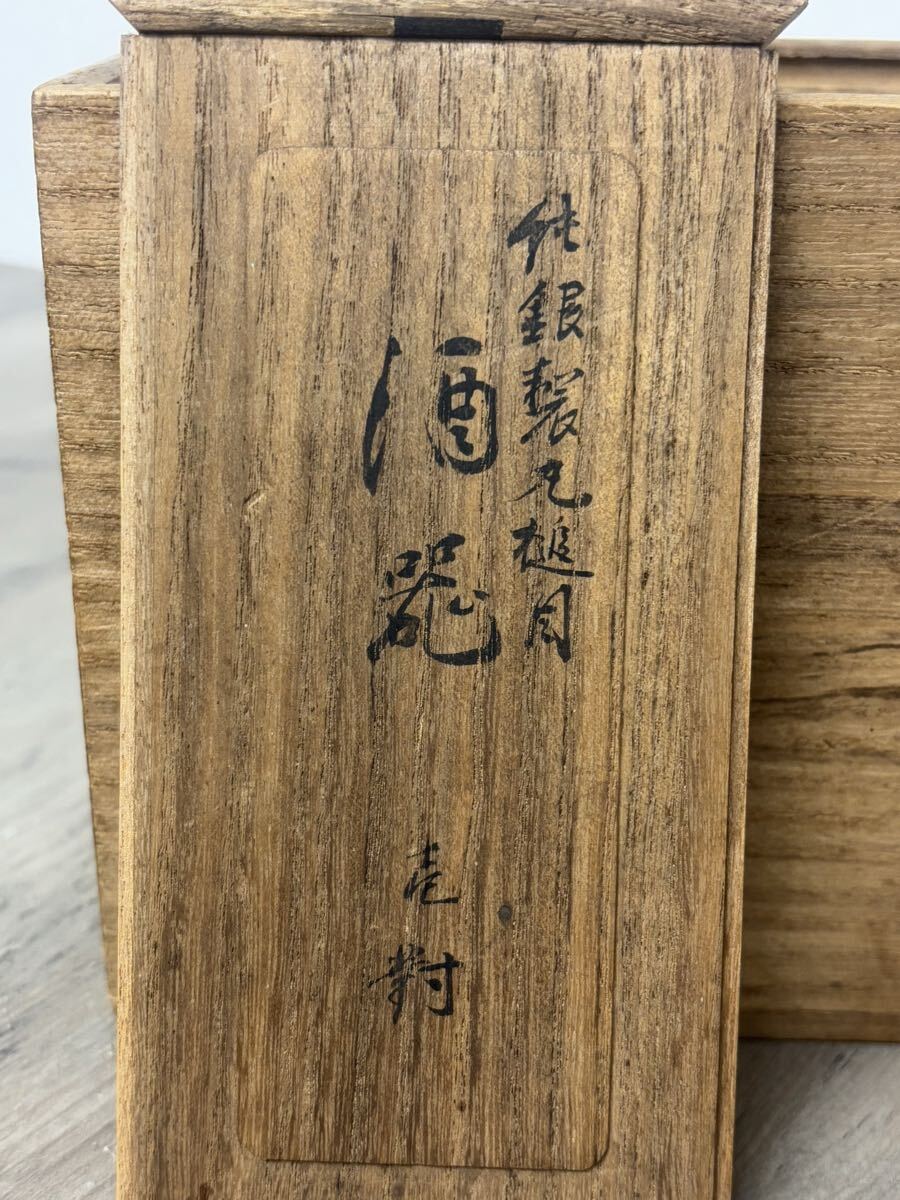 純銀製丸槌目
酒器
壱對